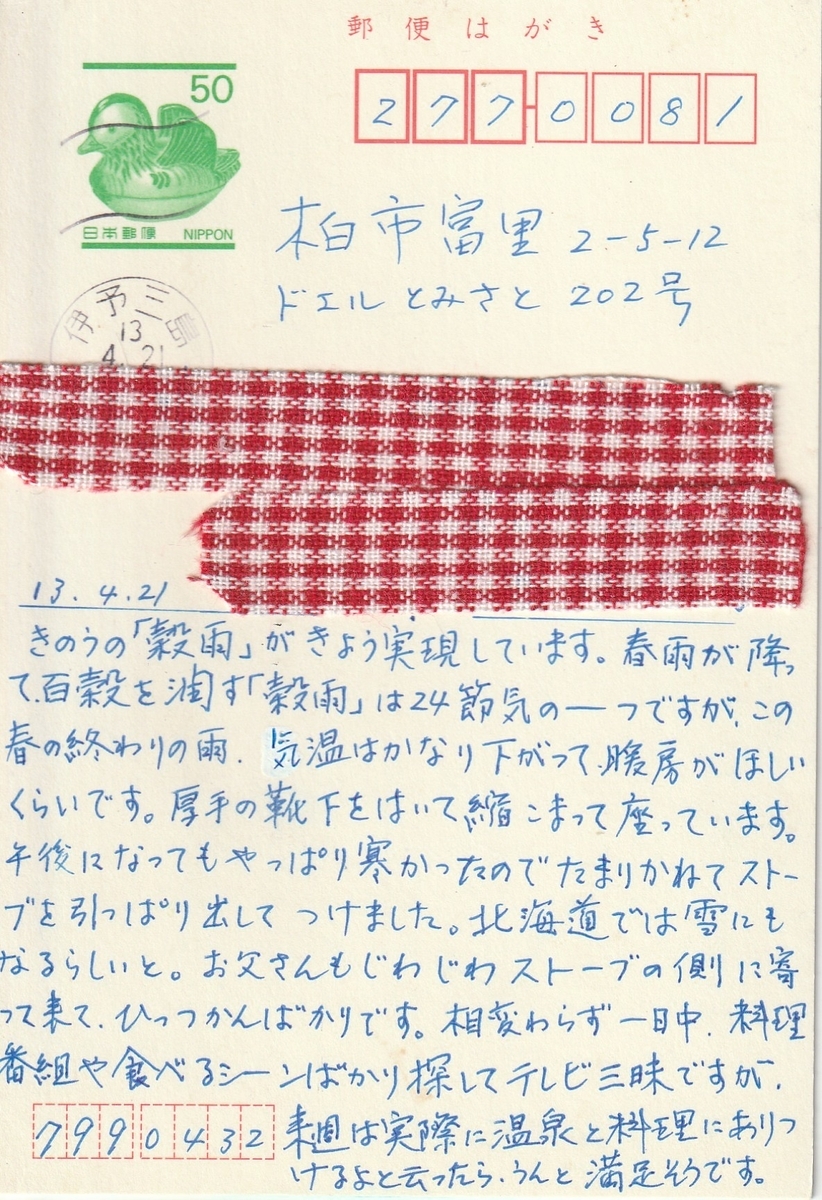 郵便はがき
50
277-0081
日本郵便 NIPPON
柏市富里 2-5-12
ドエルとみさと 202号
伊予三島
13
4.21
13.4.21
きのうの「穀雨」がきよう実現しています。春雨が降っ
て、百穀を潤す「穀雨」は24節気の一つですが、この
春の終わりの雨、気温はかなり下がって、暖房がほしい
くらいです。厚手の靴下をはいて縮こまって座っています。
午後になってもやっぱり寒かったのでたまりかねてストー
ブを引っぱり出してつけました。北海道では雪にも
なるらしいと。お父さんもじわじわストーブの側に寄
って来て、ひっつかんばかりです。相変わらず一日中、料理
番組や食べるシーンばかり探してテレビ三昧ですが、
来週は実際に温泉と料理にありつ
けるよと云ったら、うんと満足そうです。
7990432